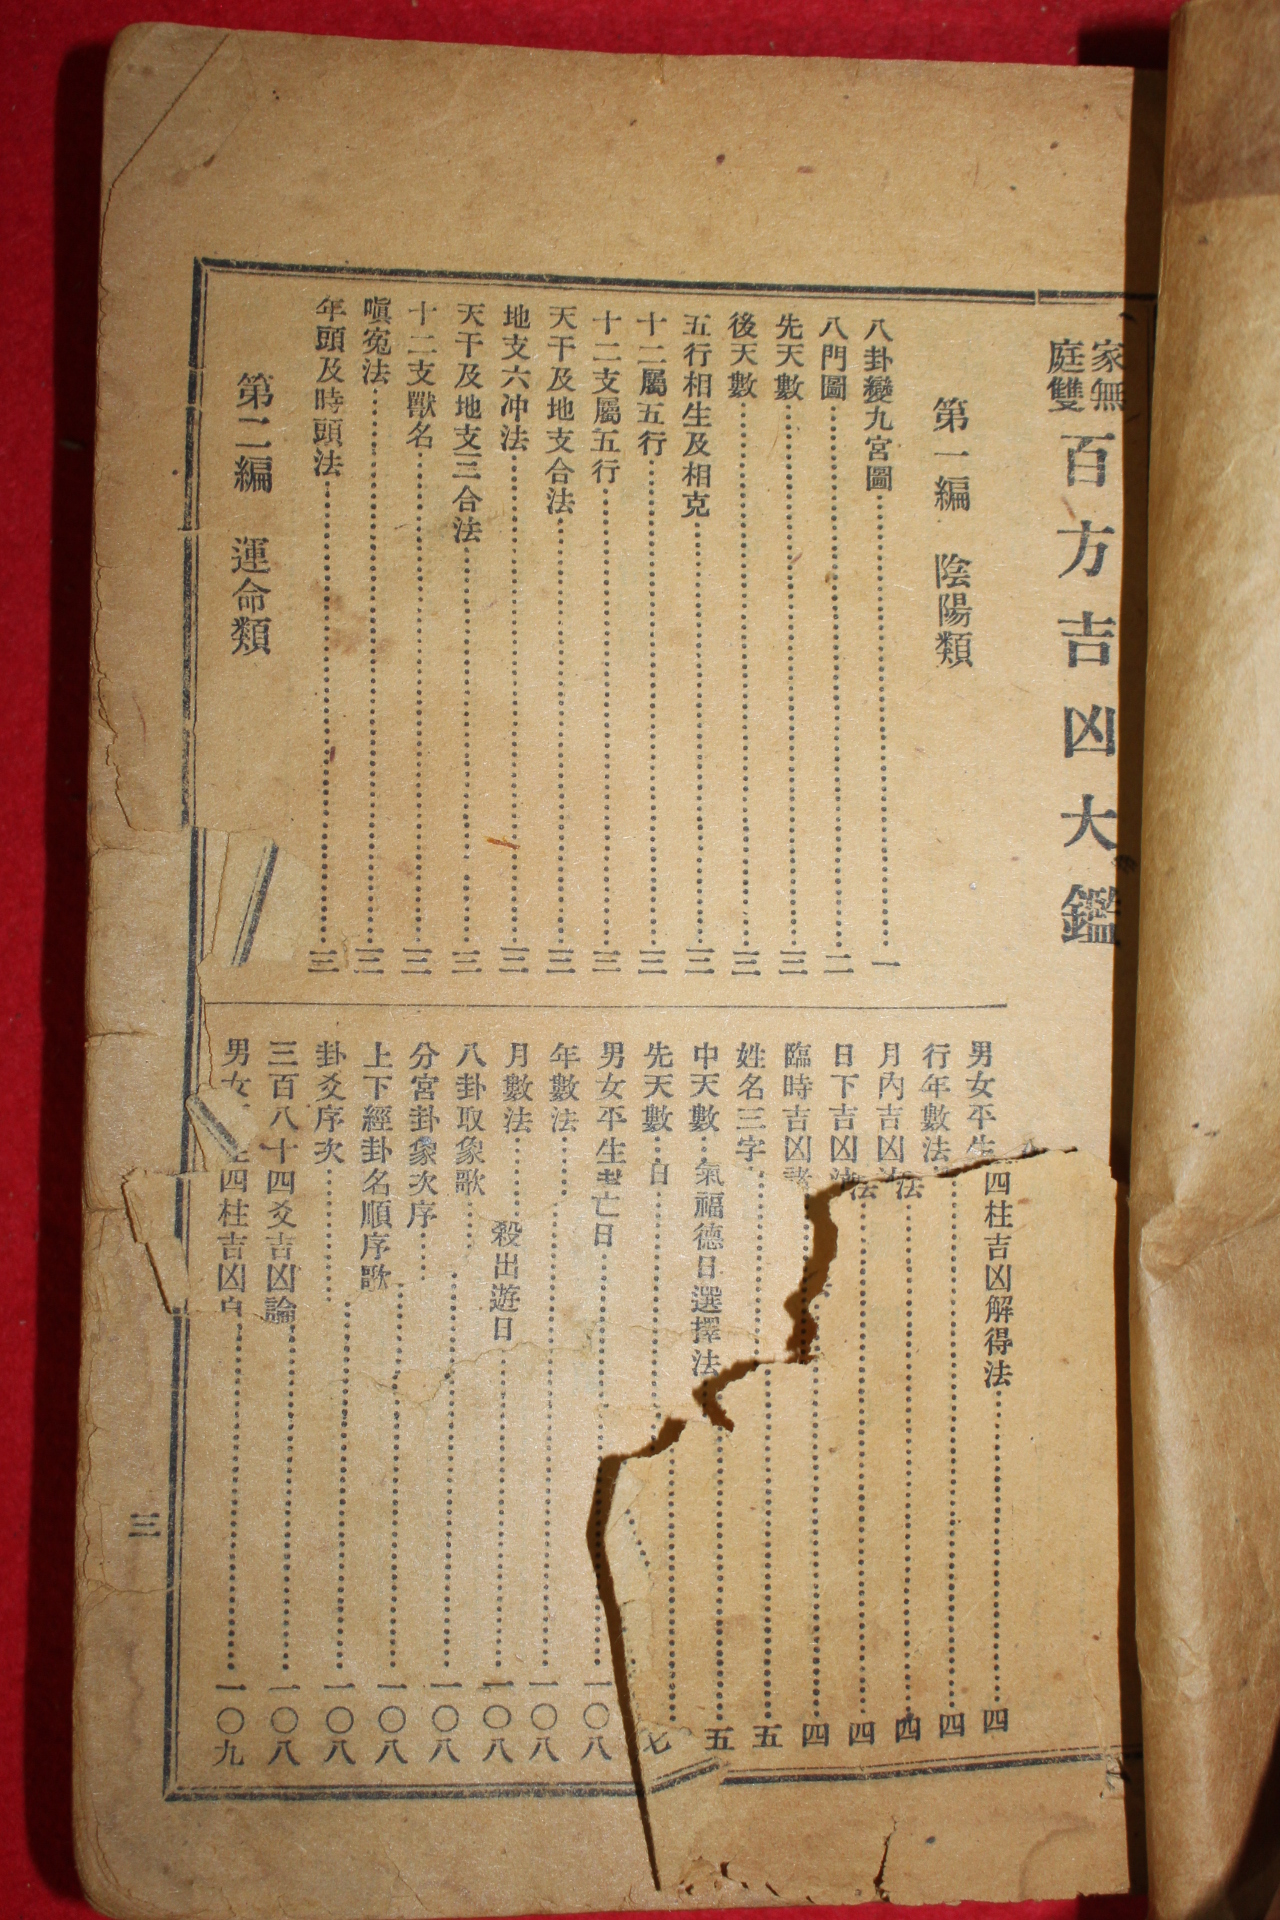 家無
庭雙
百方吉凶大鑑
第一編 陰陽類
八卦變九宮圖 一
八門圖 二
先天數 三
後天數 三
五行相生及相克 三
十二屬五行 三
十二支屬五行 三
天干及地支合法 三
地支六冲法 三
天干及地支三合法 三
十二支獸名 三
嗔寃法 三
年頭及時頭法 三
第二編 運命類
男女平生四柱吉凶解得法 四
行年數法 四
月內吉凶法 四
日下吉凶法 四
臨時吉凶 四
姓名三字 五
中天數 五
先天數 七
男女平生 一〇八
年數法 一〇八
月數法 一〇八
八卦取象歌 一〇八
分宮卦象次序 一〇八
上下經卦名順序歌 一〇八
卦爻序次 一〇八
三百八十四爻吉凶論 一〇八
男女 四柱吉凶 一〇九
氣福德日選擇法
亡日
殺出遊日
三